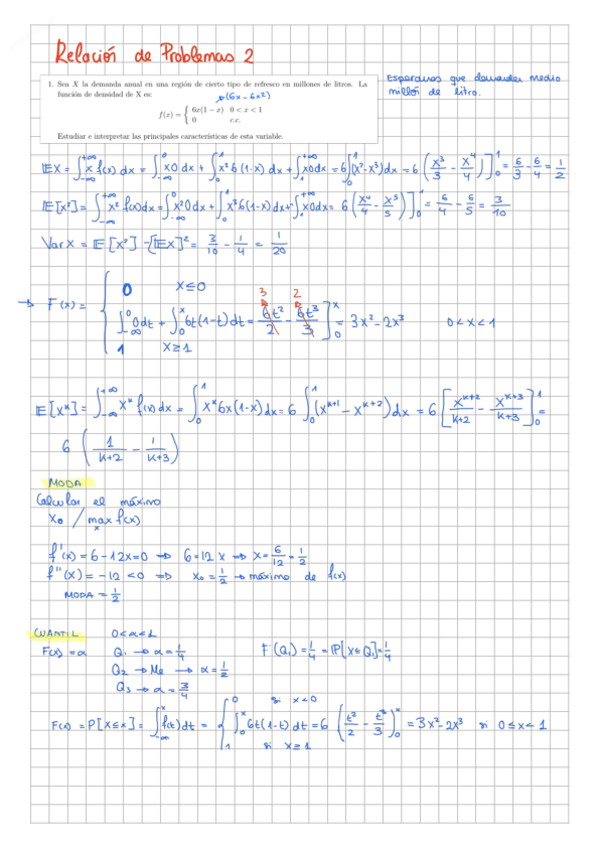 Relación de Problemas 2
1. Sea X la demanda anual en una región de cierto tipo de refresco en millones de litros. La
función de densidad de X es:
(6x - 6x²)
f(x) = { 6x(1 − x) 0 < x < 1
0 c.c.
Estudiar e interpretar las principales características de esta variable.
Esperamos que demanden medio
millón de litro.
EX = ∫_{-∞}^{+∞} x f(x) dx = ∫_{-∞}^{0} x0 dx + ∫_0^1 x²6(1-x) dx + ∫_1^{+∞} x0dx = 6∫_0^1 (x²-x³)dx = 6 (x³/3 - x⁴/4)]_0^1 = 6/3 - 6/4 = 1/2
E[x²] = ∫_{-∞}^{+∞} x² f(x)dx = ∫_{-∞}^{0} x²0dx + ∫_0^1 x³6(1-x)dx + ∫_1^{+∞} x0dx = 6 (x⁴/4 - x⁵/5)]_0^1 = 6/4 - 6/5 = 3/10
Var X = E[x²] - [EX]² = 3/10 - 1/4 = 1/20
→ F(x) = { 0 x≤0
∫_{-∞}^0 0dt + ∫_0^x 6t(1-t)dt = 6t²/2 - 6t³/3 ]_0^x = 3x²-2x³ 0<x<1
3 2
1 x≥1
E[x^k] = ∫_{-∞}^{+∞} x^k f(x)dx = ∫_0^1 x^k 6x(1-x)dx = 6 ∫_0^1 (x^{k+1} - x^{k+2})dx = 6 [x^{k+2}/k+2 - x^{k+3}/k+3]_0^1 =
6 (1/k+2 - 1/k+3)
MODA
Calcular el máximo
x₀ / max_x f(x)
f'(x) = 6-12x=0 ⇒ 6=12x ⇒ x = 6/12 = 1/2
f''(x) = -12 <0 ⇒ x₀ = 1/2 → máximo de f(x)
MODA = 1/2
CUANTIL 0<α<1
F(x) = α Q₁ → α = 1/4 F(Q₁) = 1/4 = P[X≤Q₁] = 1/4
Q₂ → Me → α = 1/2
Q₃ → α = 3/4
F(x) = P[X≤x] = ∫_{-∞}^x f(t)dt = { 0 si x<0
∫_0^x 6t(1-t)dt = 6 (t²/2 - t³/3)_0^x = 3x²-2x³ si 0≤x<1
1 si x≥1